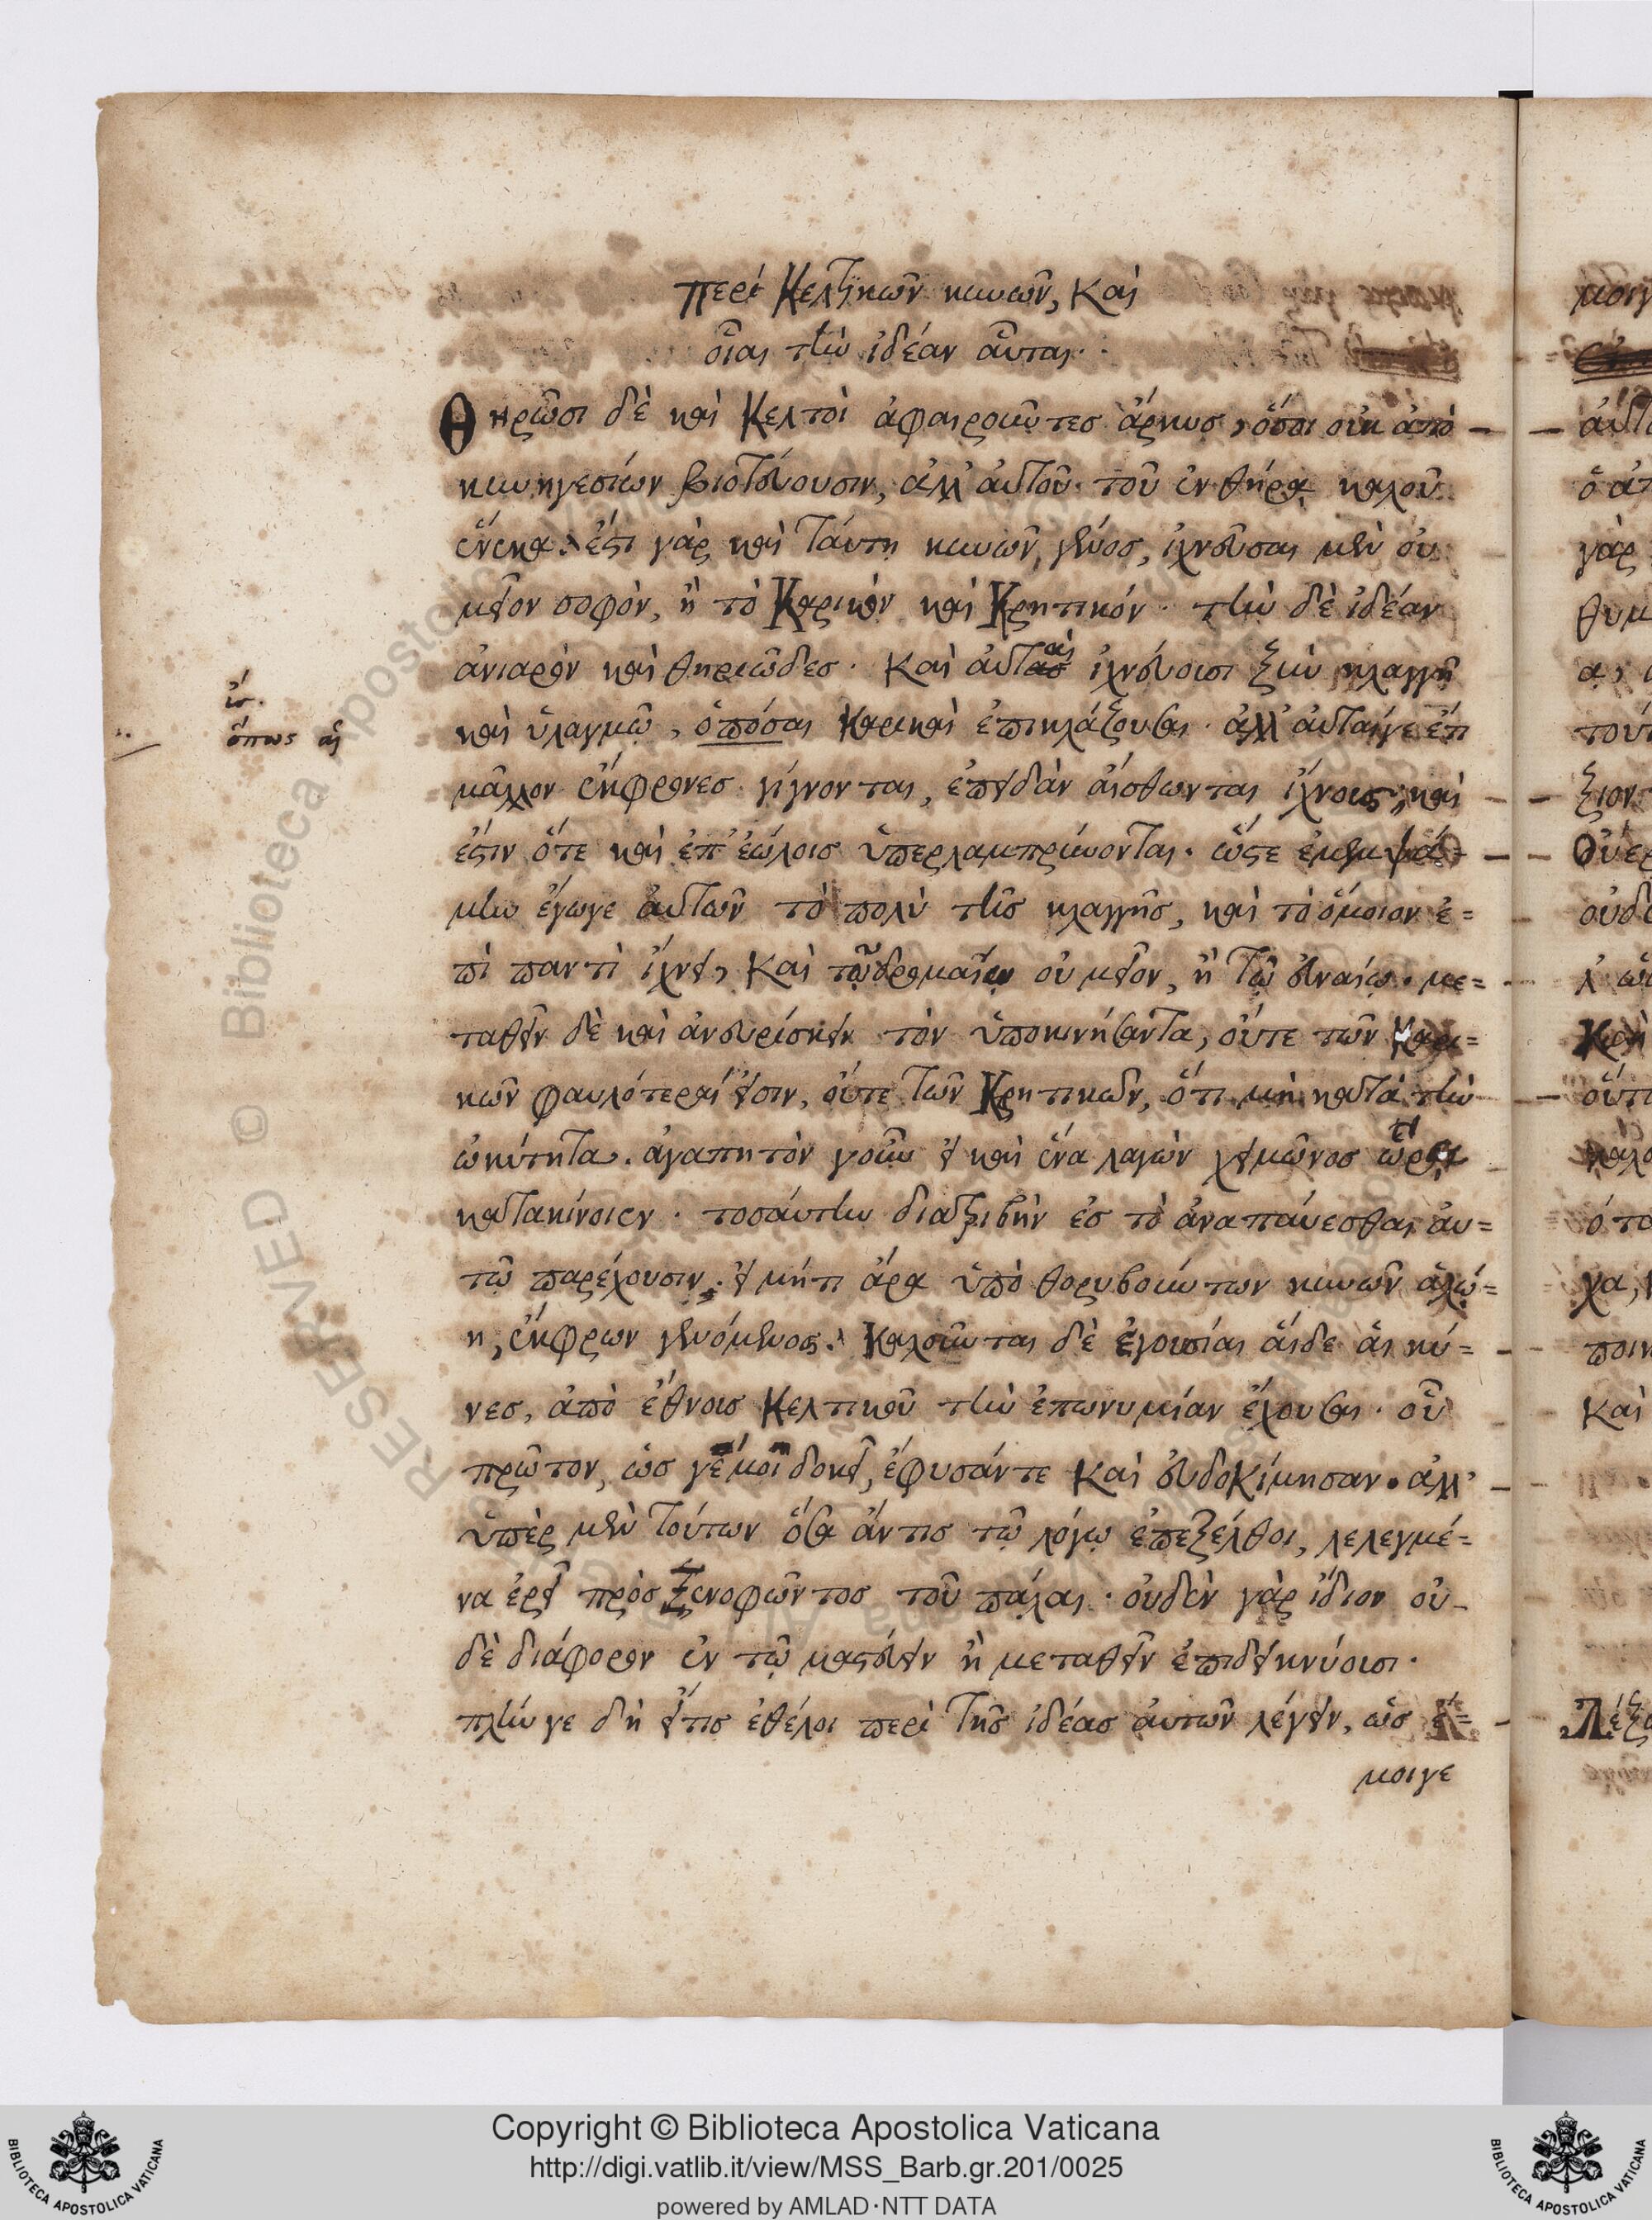 Περὶ Κελτικῶν κυνῶν, καὶ
οἷαι τὴν ἰδέαν αὗται.
Θηρῶσι δὲ καὶ Κελτοὶ ἀφαιροῦντες ἄρκυς, ὅσοι οὐκ ἀπὸ
κυνηγεσίων βιοτεύουσιν, ἀλλ' αὐτοῦ τοῦ ἐν θήρᾳ καλοῦ
ἕνεκα. ἔστι γὰρ καὶ ταύτῃ κυνῶν γένος, ἰχνεῦσαι μὲν οὐ
μεῖον σοφὸν, ἢ τὸ Καρικὸν καὶ Κρητικόν. τὴν δὲ ἰδέαν
ἀνιαρὸν καὶ θηριῶδες. Καὶ αὗται ἰχνεύουσι ξὺν κλαγγῇ
καὶ ὑλαγμῷ, ὁπόσαι Καρικαὶ ἐπικλάζουσαι. ἀλλ' αὗταί γε ἔτι
ἴσ.
ὅπως αἱ
μᾶλλον ἔκφρονες γίγνονται, ἐπειδὰν αἴσθωνται ἴχνους, καὶ
ἔστιν ὅτε καὶ ἐπ' ἑώλοις ὑπερλαμπρύνονται. ὥστε ἐμεμψά=
μην ἔγωγε αὐτῶν τὸ πολὺ τῆς κλαγγῆς, καὶ τὸ ὅμοιον ἐ=
πὶ παντὶ ἴχνει, καὶ τῷ δρομαίῳ οὐ μεῖον, ἢ τῷ εὐναίῳ. με=
ταθεῖν δὲ καὶ ἀνευρίσκειν τὸν ὑποκινήσαντα, οὔτε τῶν Καρι=
κῶν φαυλότεραί εἰσιν, οὔτε τῶν Κρητικῶν, ὅτι μὴ κατὰ τὴν
ὠκύτητα. ἀγαπητὸν γοῦν εἰ καὶ ἕνα λαγὼν χειμῶνος ὥρᾳ
κατακάνοιεν. τοσαύτην διατριβὴν ἐς τὸ ἀναπαύεσθαι αὐ=
τῷ παρέχουσιν. εἰ μήτι ἄρα ὑπὸ θορυβούντων κυνῶν ἁλώ=
η, ἔκφρων γενόμενος. Καλοῦνται δὲ ἐγουσίαι αἵδε αἱ κύ=
νες, ἀπὸ ἔθνους Κελτικοῦ τὴν ἐπωνυμίαν ἔχουσαι. οὗ
πρῶτον, ὥς γέ μοι δοκεῖ, ἔφυσάν τε καὶ εὐδοκίμησαν. ἀλλ'
ὑπὲρ μὲν τούτων ὅσα ἄν τις τῷ λόγῳ ἐπεξέλθοι, λελεγμέ=
να ἐρεῖ πρὸς Ξενοφῶντος τοῦ πάλαι. οὐδὲν γὰρ ἴδιον οὐ-
δὲ διάφορον ἐν τῷ μαστεύειν ἢ μεταθεῖν ἐπιδεικνύουσι.
πλήν γε δὴ εἴτις ἐθέλοι περὶ τῆς ἰδέας αὐτῶν λέγειν, ὡς ἔ=
μοιγε
Copyright © Biblioteca Apostolica Vaticana
http://digi.vatlib.it/view/MSS_Barb.gr.201/0025
powered by AMLAD·NTT DATA